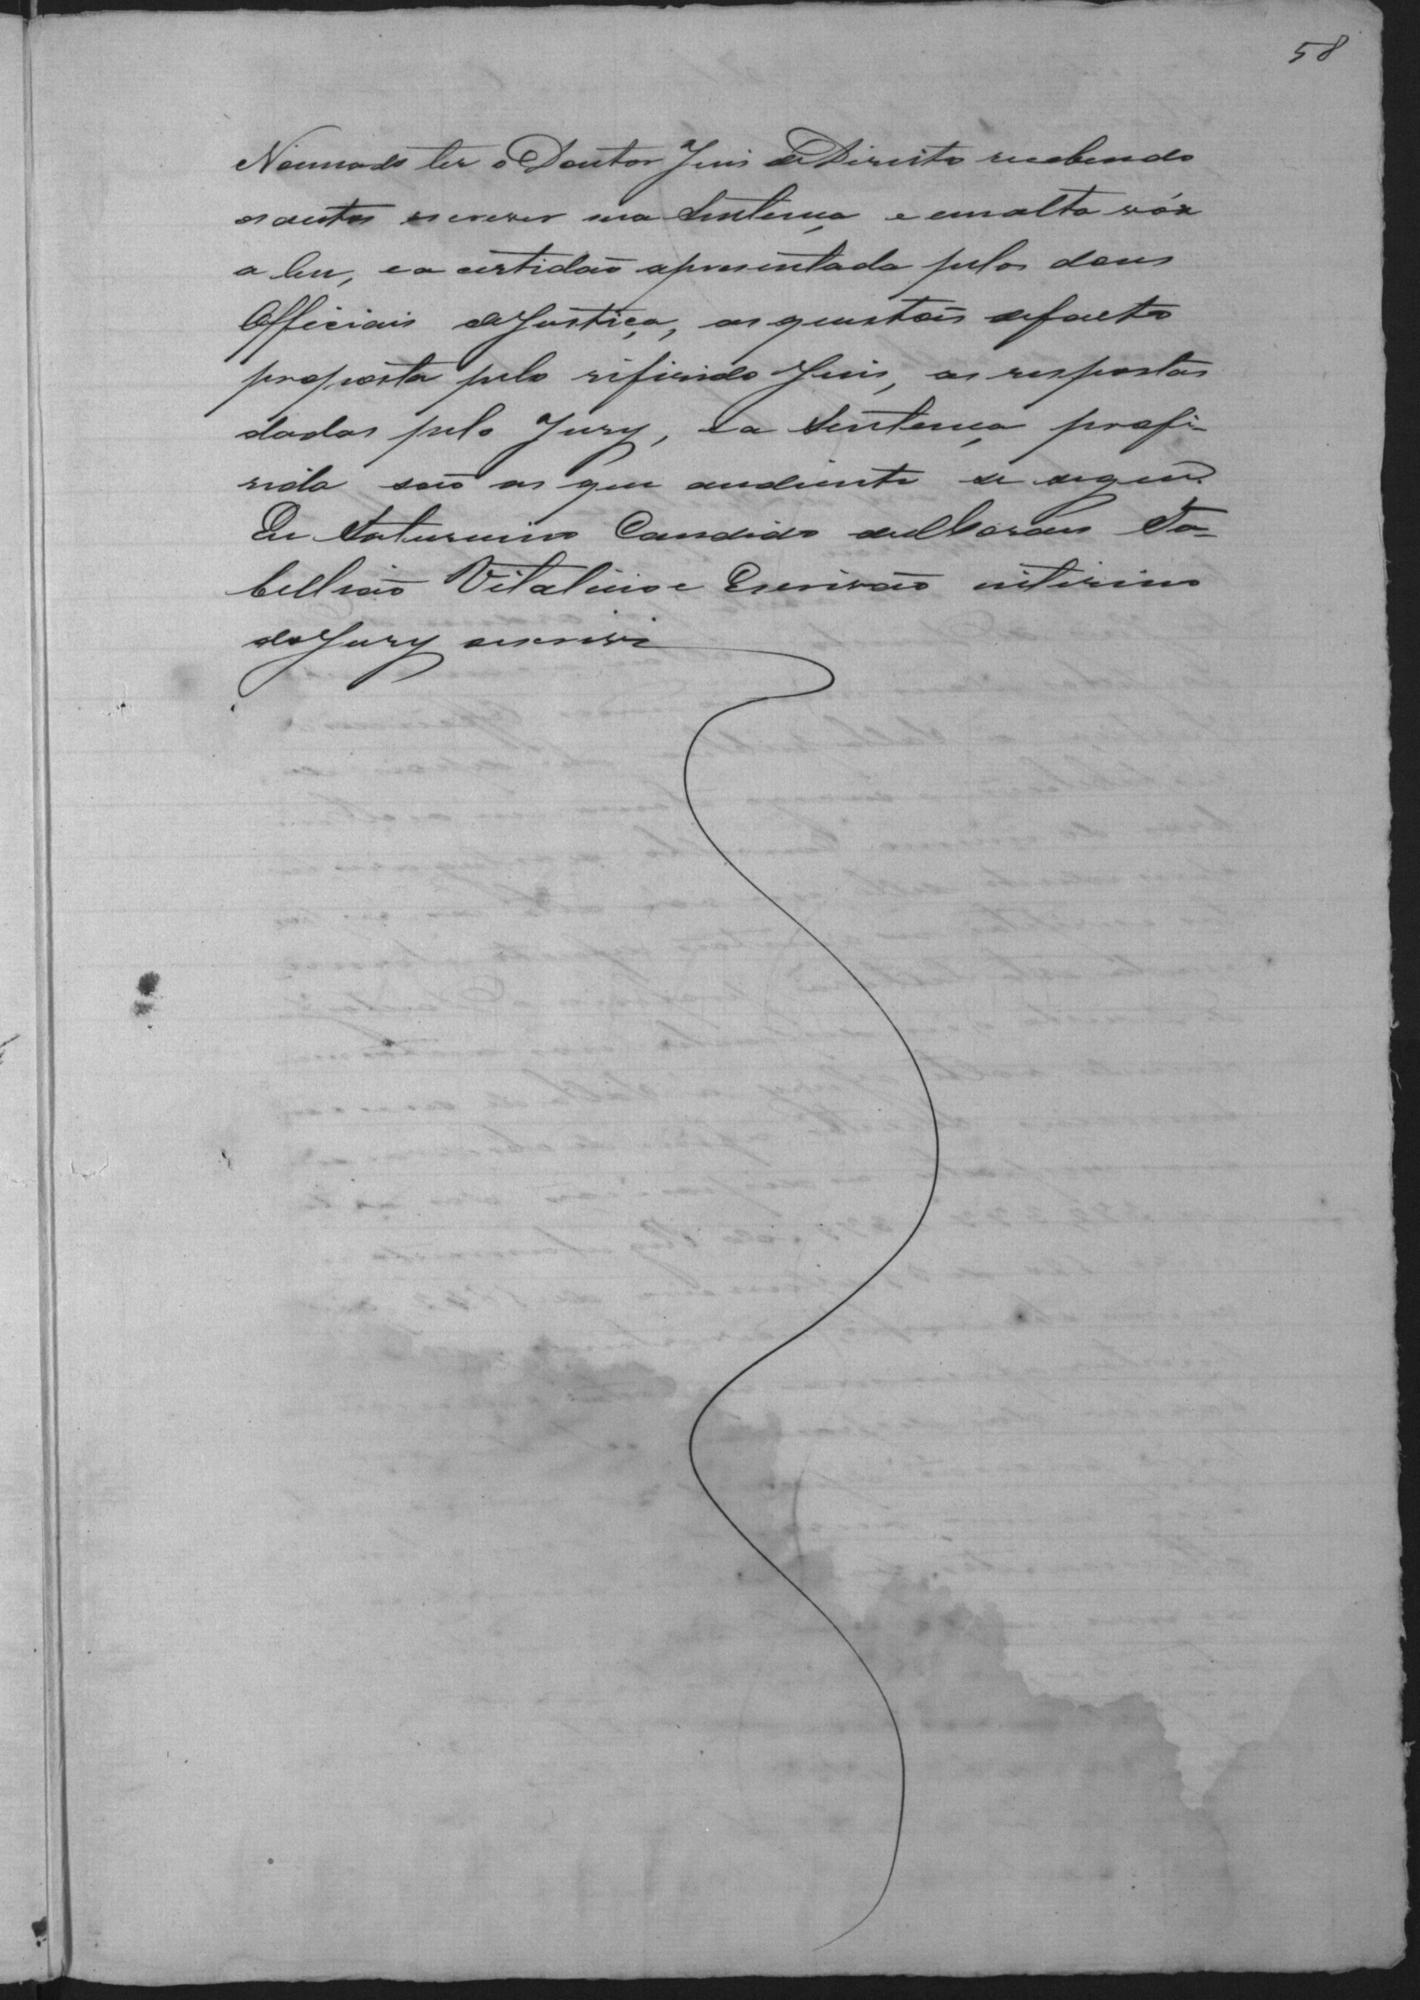 58
ler o Doutor Juis de Direito recebendo
os autos escrever sua Sentença e em alta vóz
a leu, e a certidaõ apresentada pelos dous
Officiais de Justiça, as questoẽs de facto
proposta pelo referido Juis, as respostas
dadas pelo Jury, e a Sentença profe-
rida saõ as que andiente se seguem.
Eu Saturnino Candido de Moraes Ta-
belliaõ Vitalicio e Escrivaõ interino
do Jury escrevi